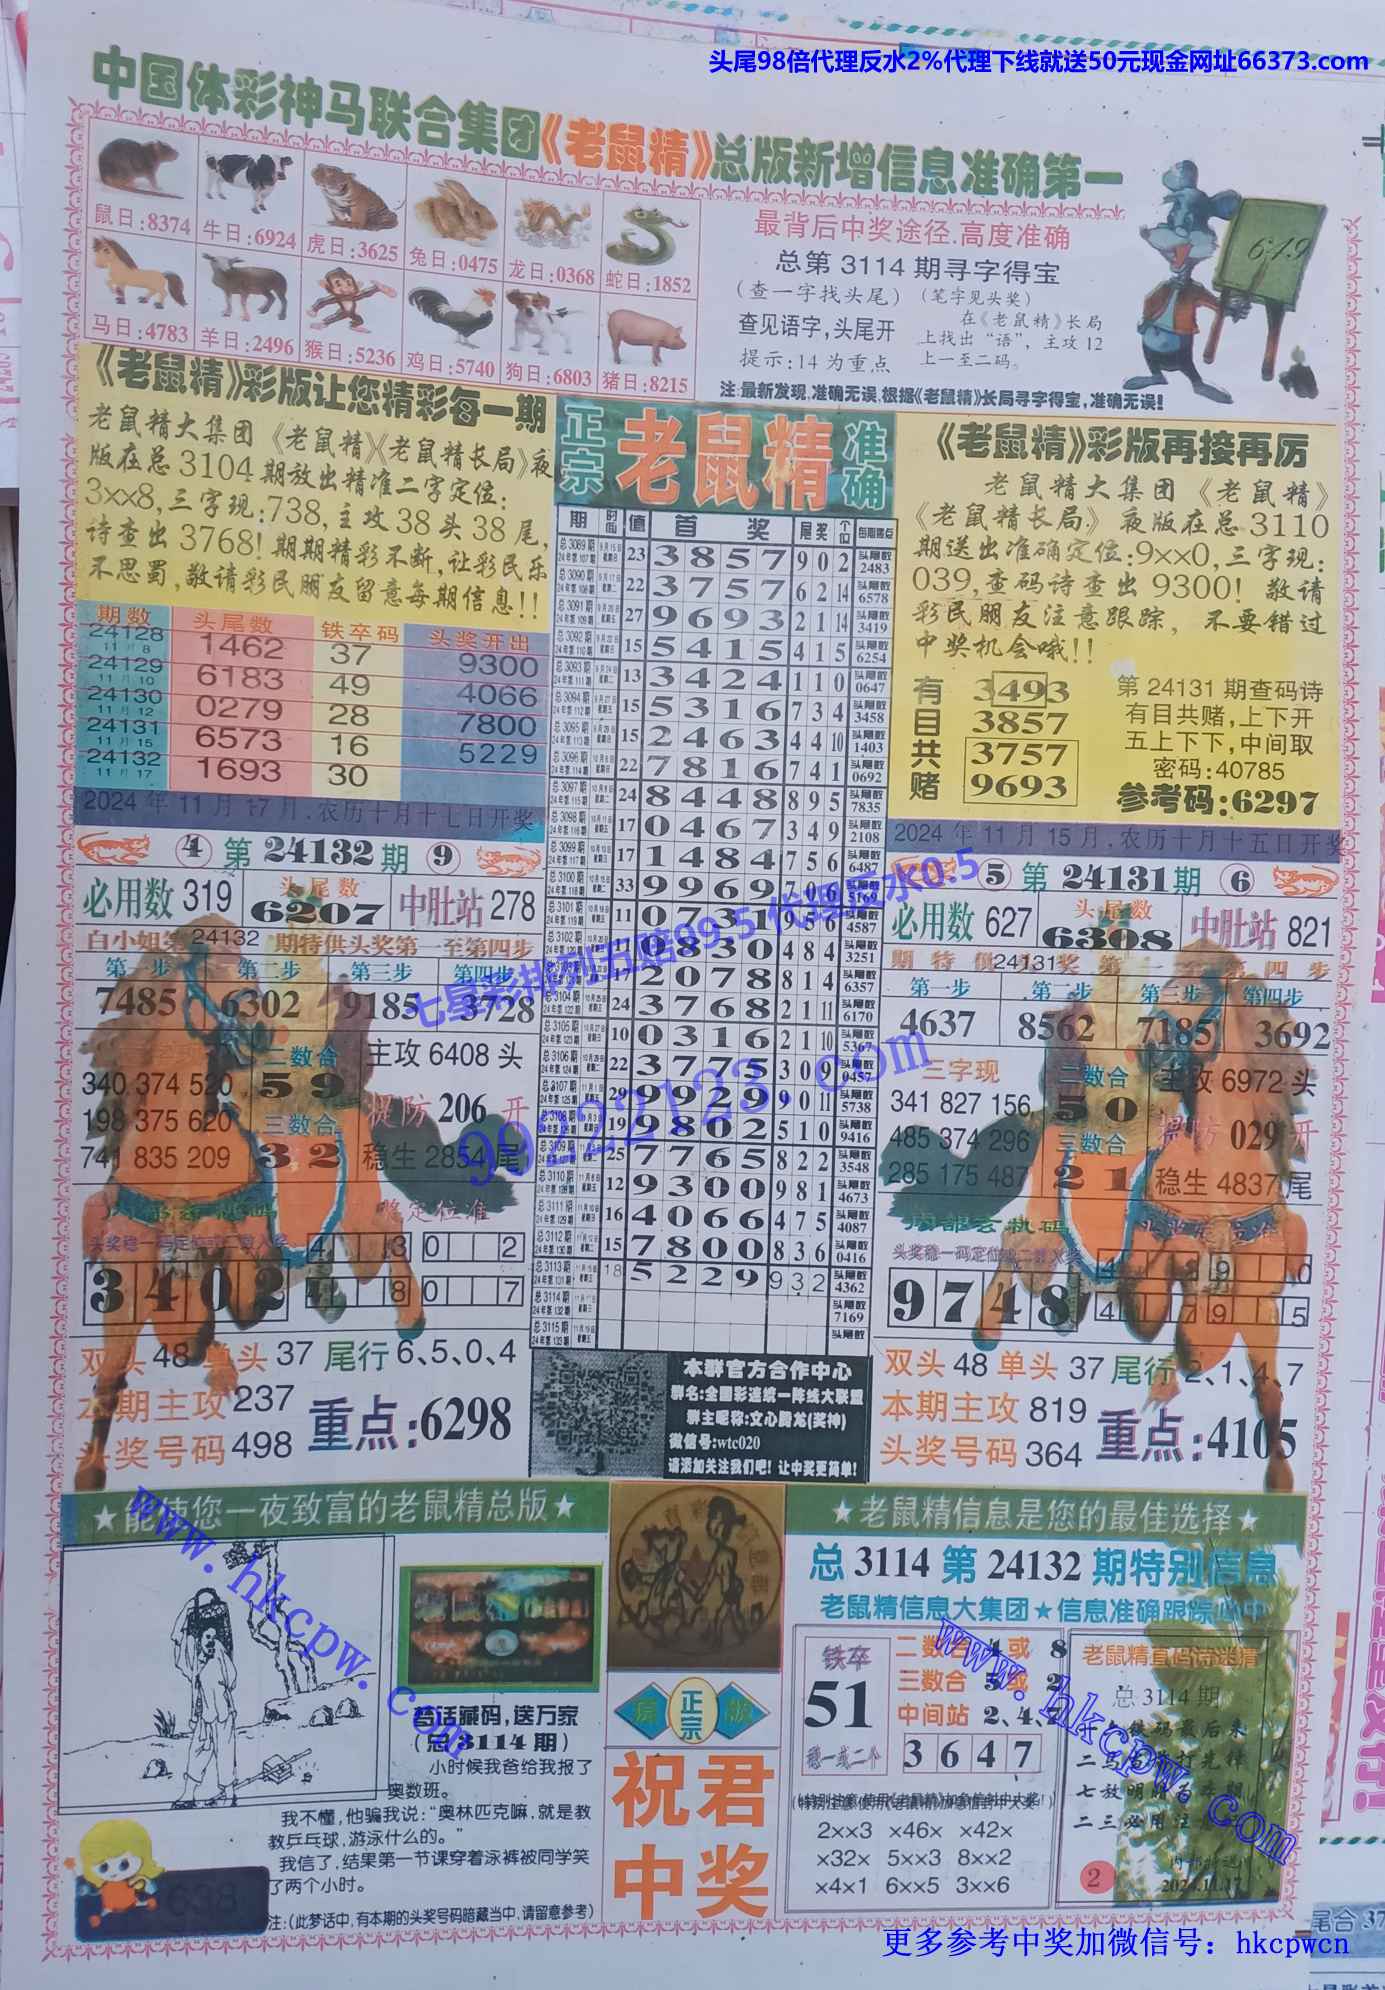 头尾98倍代理反水2%代理下线就送50元现金网址66373.com
中国体彩神马联合集团《老鼠精》总版新增信息准确第一
鼠日:8374
牛日:6924
虎日:3625
兔日:0475
龙日:0368
蛇日:1852
马日:4783
羊日:2496
猴日:5236
鸡日:5740
狗日:6803
猪日:8215
最背后中奖途径.高度准确
总第 3114 期寻字得宝
(查一字找头尾)
查见语字,头尾开
提示:14为重点
(笔字见头奖)
在《老鼠精》长局
上找出“语”,主攻12
上一至二码。
注:最新发现,准确无误,根据《老鼠精》长局寻字得宝,准确无误!
649
《老鼠精》彩版让您精彩每一期
老鼠精大集团《老鼠精》《老鼠精长局》夜
版在总3104期放出精准二字定位:
3xx8,三字现:738,主攻38头38尾,
诗查出3768!期期精彩不断,让彩民乐
不思蜀,敬请彩民朋友留意每期信息!!
期数 头尾数 铁卒码 头奖开出
24128 11月8 1462 37 9300
24129 11月10 6183 49 4066
24130 11月12 0279 28 7800
24131 11月15 6573 16 5229
24132 11月17 1693 30
2024年11月17月.农历十月十七日开奖
④ 第24132期 ⑨
必用数 319 头尾数 6207 中肚站 278
白小姐第24132期特供头奖第一至第四步
第一步 第二步 第三步 第四步
7485 6302 9185 3728
340 374 520
198 375 620
741 835 209
二数合
59
三数合
32
主攻 6408 头
提防 206 开
稳生 2854 尾
稳定位准
头奖稳一码定位或二数入奖
3402
4 3 0 2
8 0 7
双头 48 单头 37 尾行 6、5、0、4
本期主攻 237
头奖号码 498
重点:6298
正宗 老鼠精 准确
期 时间 值 首奖 尾奖 个位 每期重点
总3089期 23 3857 9 0 2 头尾数 2483
总3090期 22 3757 6 2 14 头尾数 6578
总3091期 27 9693 2 1 14 头尾数 3419
总3092期 15 5415 4 1 5 头尾数 6254
总3093期 13 3424 1 1 0 头尾数 0647
总3094期 15 5316 7 3 4 头尾数 3458
总3095期 15 2463 4 4 10 头尾数 1403
总3096期 22 7816 7 4 1 头尾数 0692
总3097期 24 8448 8 9 5 头尾数 7835
总3098期 17 0467 3 4 9 头尾数 2108
总3099期 17 1484 7 5 6 头尾数 6487
总3100期 33 9969 7 0 6 头尾数 5169
总3101期 11 0731 9 5 6 头尾数 4587
总3102期 11 0830 4 8 4 头尾数 3251
17 2078 8 1 4 头尾数 6357
总3104期 24 3768 2 1 11 头尾数 6170
总3105期 10 0316 2 1 10 头尾数 5367
总3106期 22 3775 3 0 9 头尾数 0457
总3107期 29 9929 9 0 11 头尾数 5738
总3108期 19 9802 5 1 0 头尾数 9416
总3109期 25 7765 8 2 2 头尾数 3548
总3110期 12 9300 9 8 1 头尾数 4673
总3111期 16 4066 4 7 5 头尾数 4087
总3112期 15 7800 8 3 6 头尾数 0416
总3113期 18 5229 9 3 2 头尾数 4362
总3114期 头尾数 7169
总3115期 头尾数
七星彩排列五赔99.5 代理反水0.5
99222123.com
本群官方合作中心
群名:全国彩连统一阵线大联盟
群主昵称:文心腾龙(奖神)
微信号:wtc020
请添加关注我们吧! 让中奖更简单!
《老鼠精》彩版再接再厉
老鼠精大集团《老鼠精》
《老鼠精长局》夜版在总3110
期送出准确定位:9xx0,三字现:
039,查码诗查出9300! 敬请
彩民朋友注意跟踪,不要错过
中奖机会哦!!
有目共赌
3493
3857
3757
9693
第24131期查码诗
有目共赌,上下开
五上下下,中间取
密码:40785
参考码:6297
2024年11月15月.农历十月十五日开奖
⑤ 第24131期 ⑥
必用数 627 头尾数 6308 中肚站 821
期特供24131奖第一至第四步
第一步 第二步 第三步 第四步
4637 8562 7185 3692
三字现
341 827 156
485 374 296
285 175 487
二数合
50
三数合
21
主攻 6972 头
提防 029 开
稳生 4837 尾
内部老铁码
头奖稳一码定位或二数入奖
9748
4 9 0
4 7 9 5
双头 48 单头 37 尾行 2、1、4、7
本期主攻 819
头奖号码 364
重点:4105
★能使您一夜致富的老鼠精总版★
梦话藏码,送万家
(总3114期)
小时候我爸给我报了
奥数班。
我不懂,他骗我说:“奥林匹克嘛,就是教
教乒乓球,游泳什么的。”
我信了,结果第一节课穿着泳裤被同学笑
了两个小时。
注:(此梦话中,有本期的头奖号码暗藏当中,请留意参考)
638
正宗
祝君
中奖
★老鼠精信息是您的最佳选择★
总 3114 第 24132 期特别信息
老鼠精信息大集团★信息准确跟踪必中
铁卒
51
稳一或二个
二数合 4 或 8
三数合 5 或 2
中间站 2、4、7
3647
(特别注意:使用《老鼠精》加急信封中大奖!)
2××3 ×46× ×42×
×32× 5××3 8××2
×4×1 6××5 3××6
老鼠精直码诗迷猜
总3114期
2
2024.11.17
www.hkcpw.com
www.hkcpw.com
更多参考中奖加微信号: hkcpwcn
尾合37